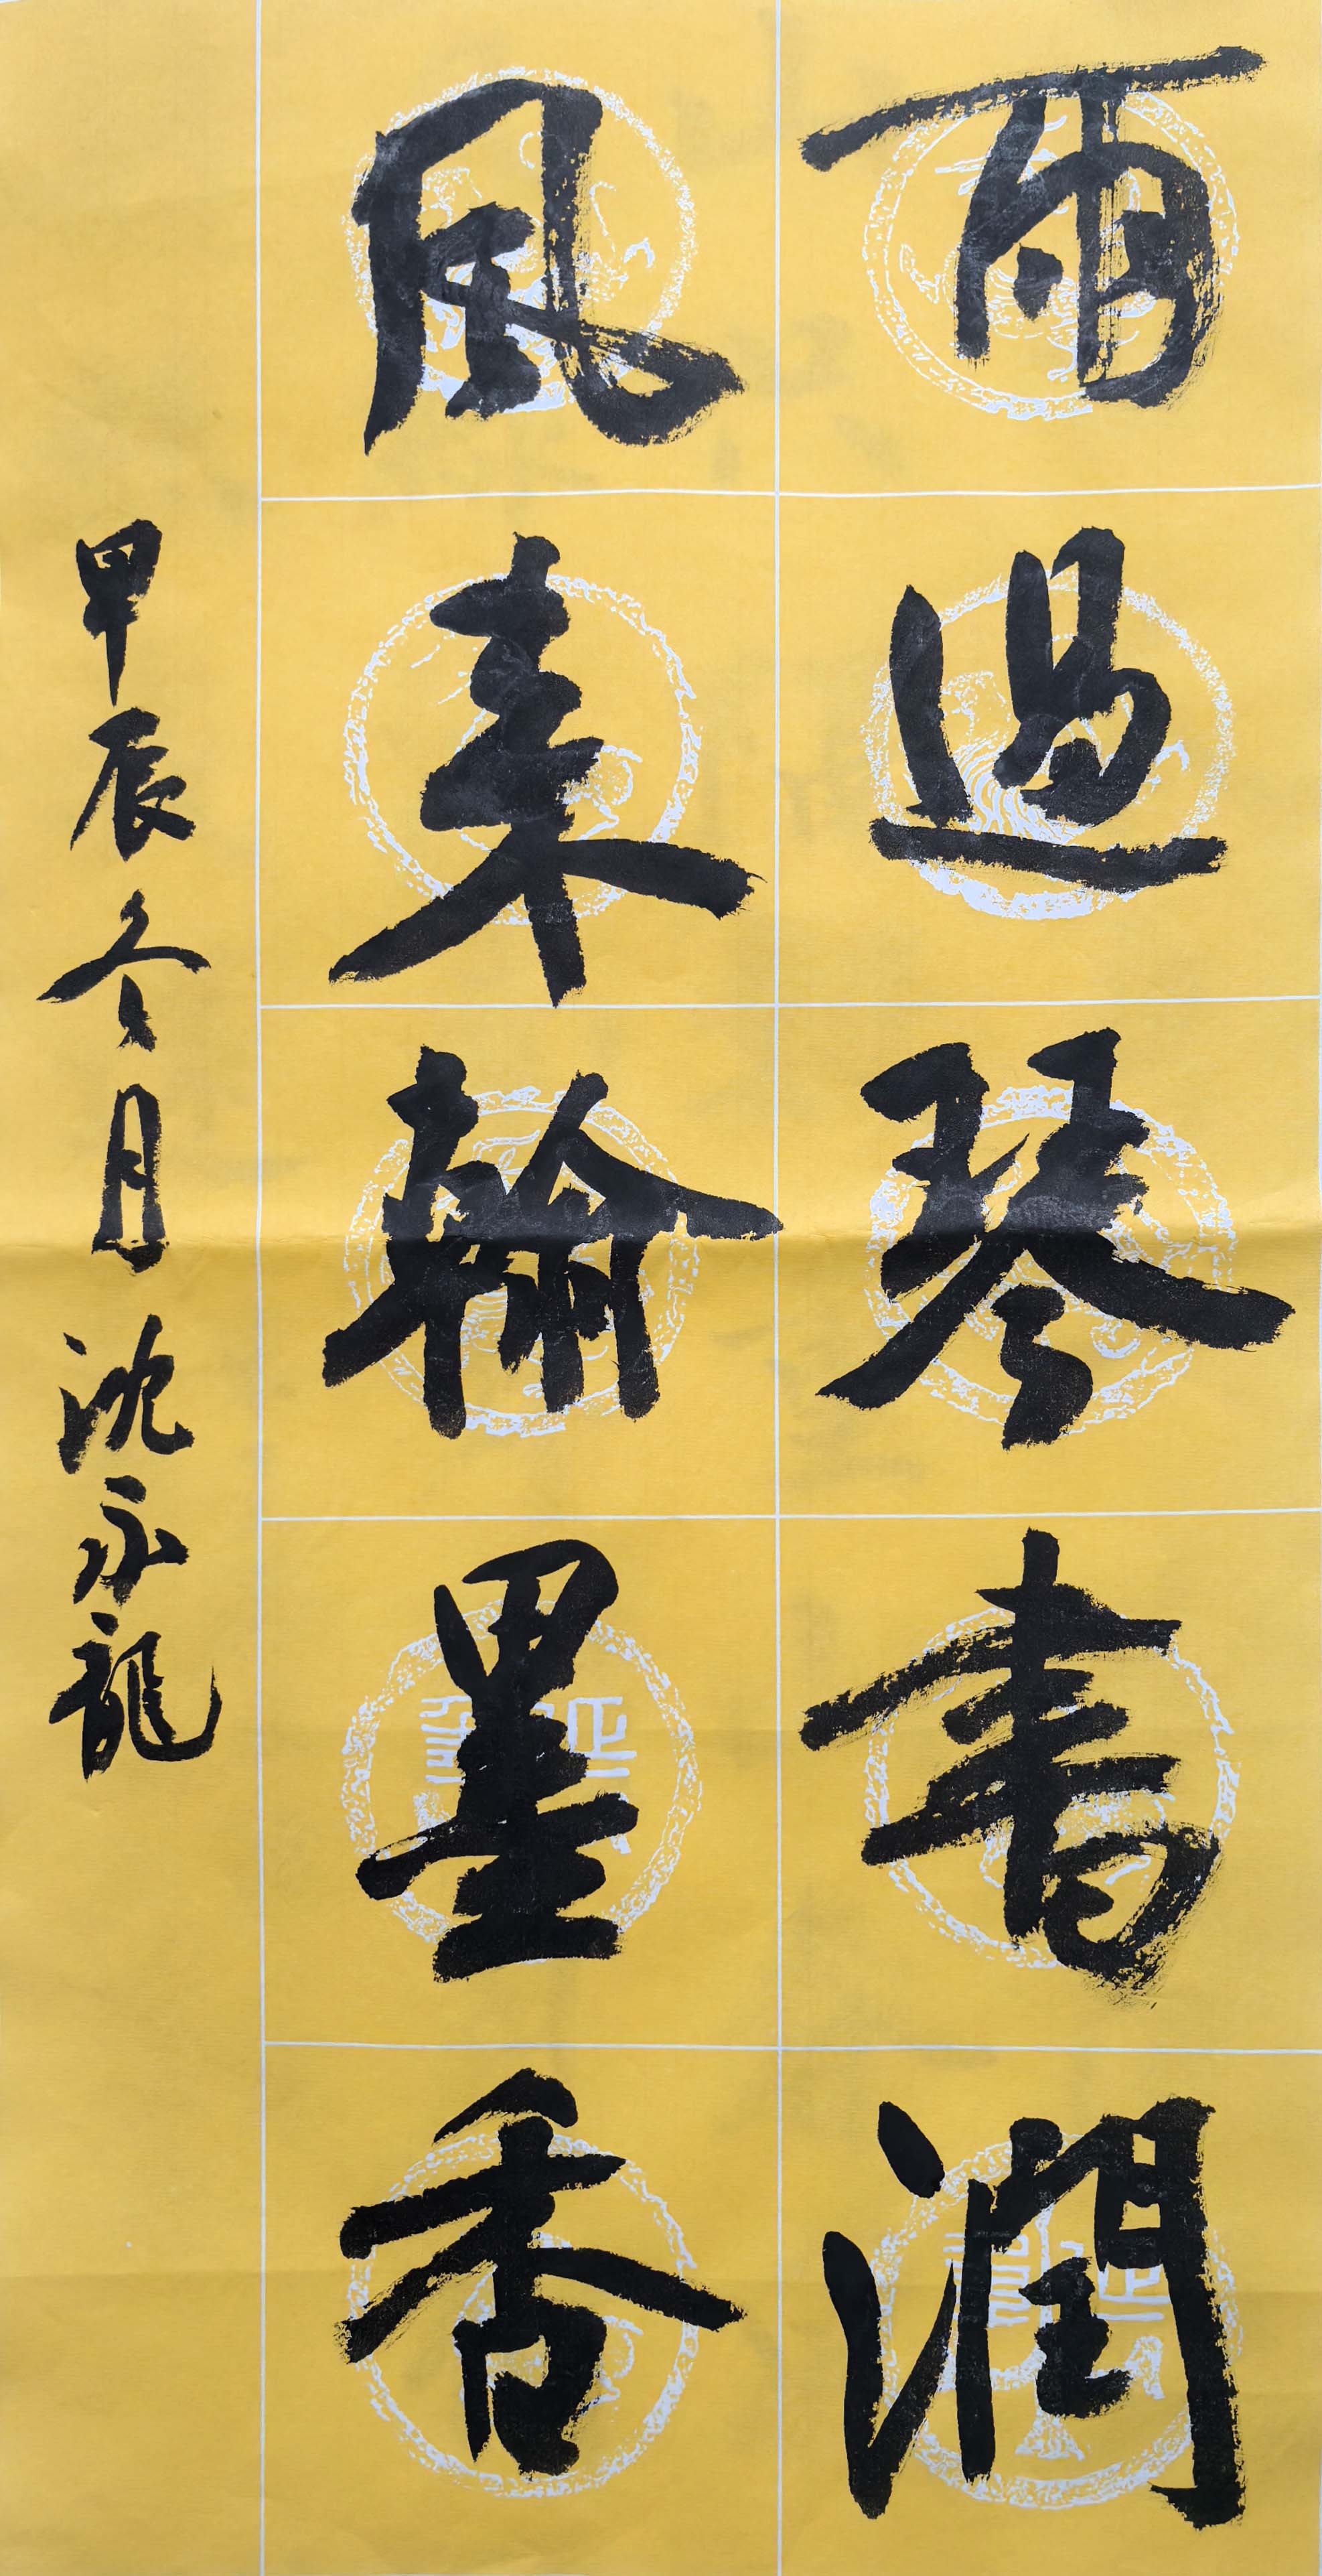 雨過琴書潤
風来翰墨香
甲辰冬月沈永龍